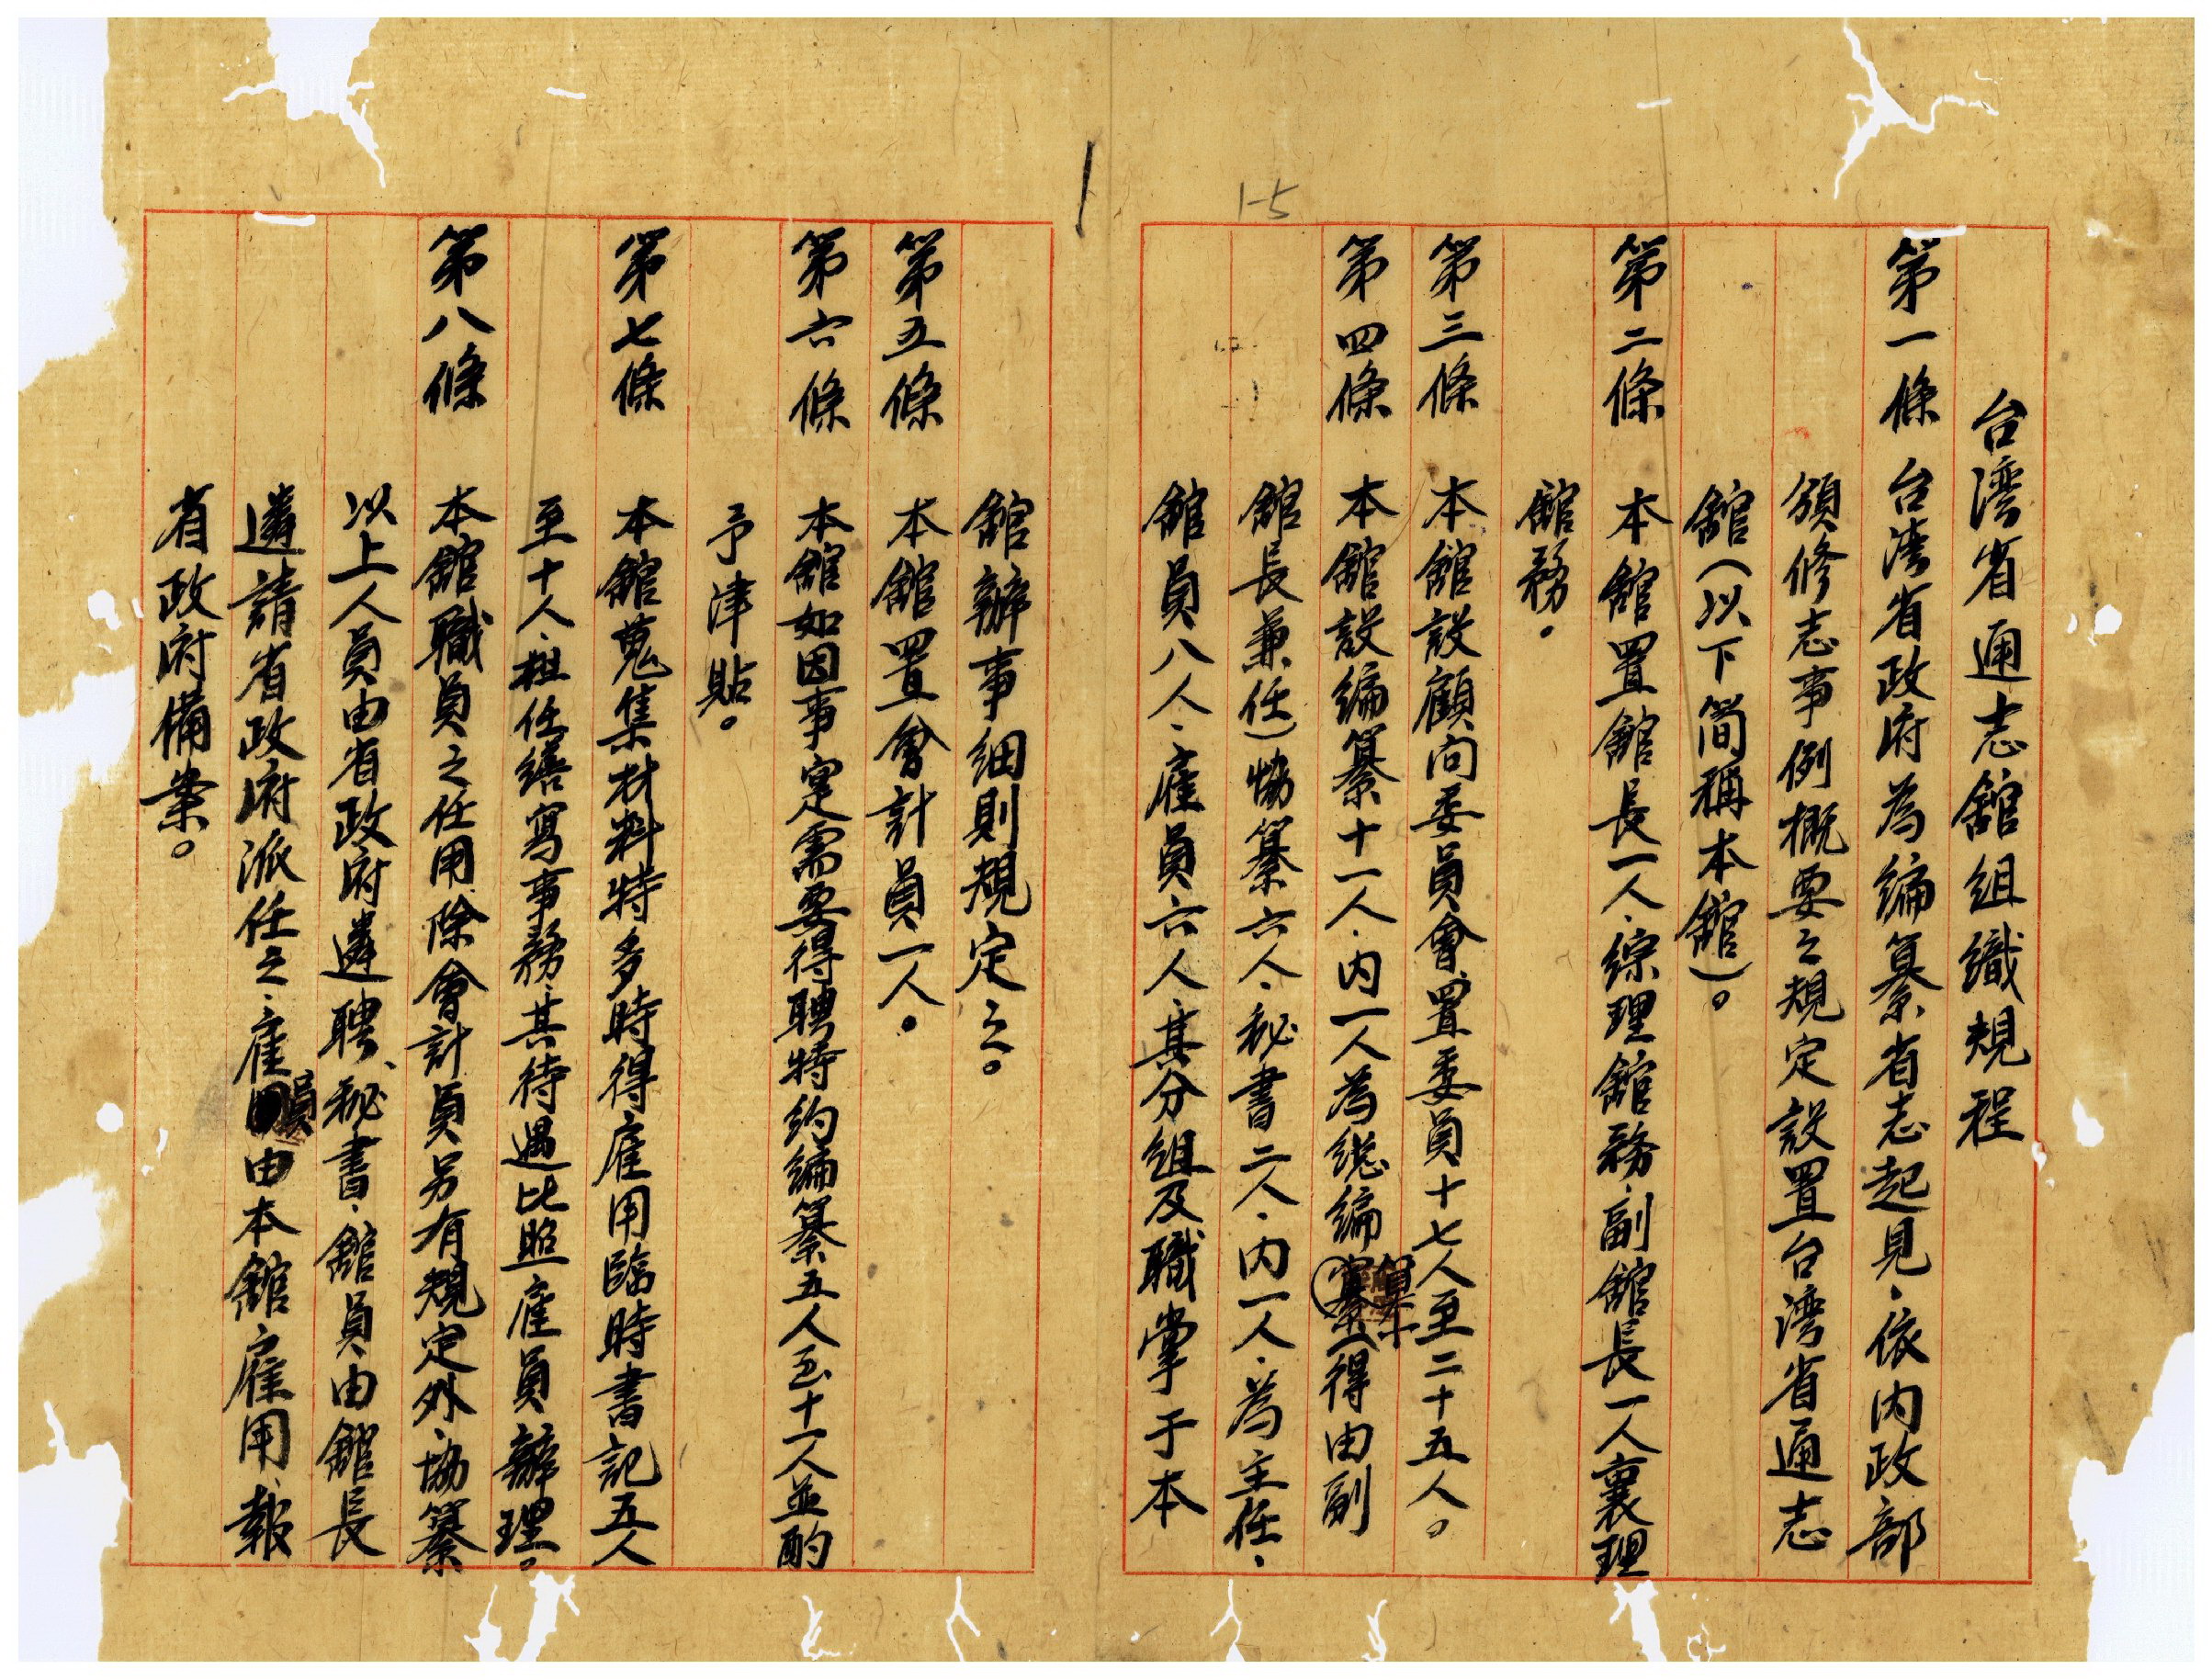 1-5
台湾省通志舘組織規程
第一條 台湾省政府為編纂省志起見、依内政部
頒修志事例概要之規定設置台湾省通志
舘(以下简稱本舘)。
第二條 本舘置舘長一人、綜理舘務、副舘長一人襄理
舘務。
第三條 本舘設顧问委員會、置委員十七人至二十五人。
第四條 本舘設編纂十一人、内一人為総編纂(得由副
舘長兼任)協纂六人、秘書二人、内一人、為主任、
舘員八人、雇員六人、其分組及職掌于本
舘辦事細則規定之。
第五條 本舘置會計員一人。
第六條 本舘如因事寔需要得聘特約編纂五人至十一人並酌
予津貼。
第七條 本舘蒐集材料特多時得雇用臨時書記五人
至十人、担任繕寫事務、其待遇比照雇員辦理。
第八條 本舘職員之任用除會計員另有規定外、協纂
以上人員由省政府遴聘、秘書、舘員由舘長
遴請省政府派任之、雇員由本舘雇用、報
省政府備案。